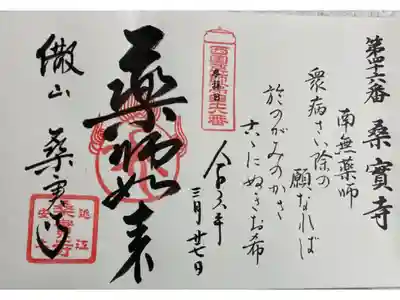 第四十六番 桑實寺
南無薬師
衆病さい除の
願なれば
於のがみのかさ
古々にぬきお希
西國薬師第四十六番
令和六年
三月廿七日
薬師如来
繖山 桑實寺
近江
桑實寺
安土